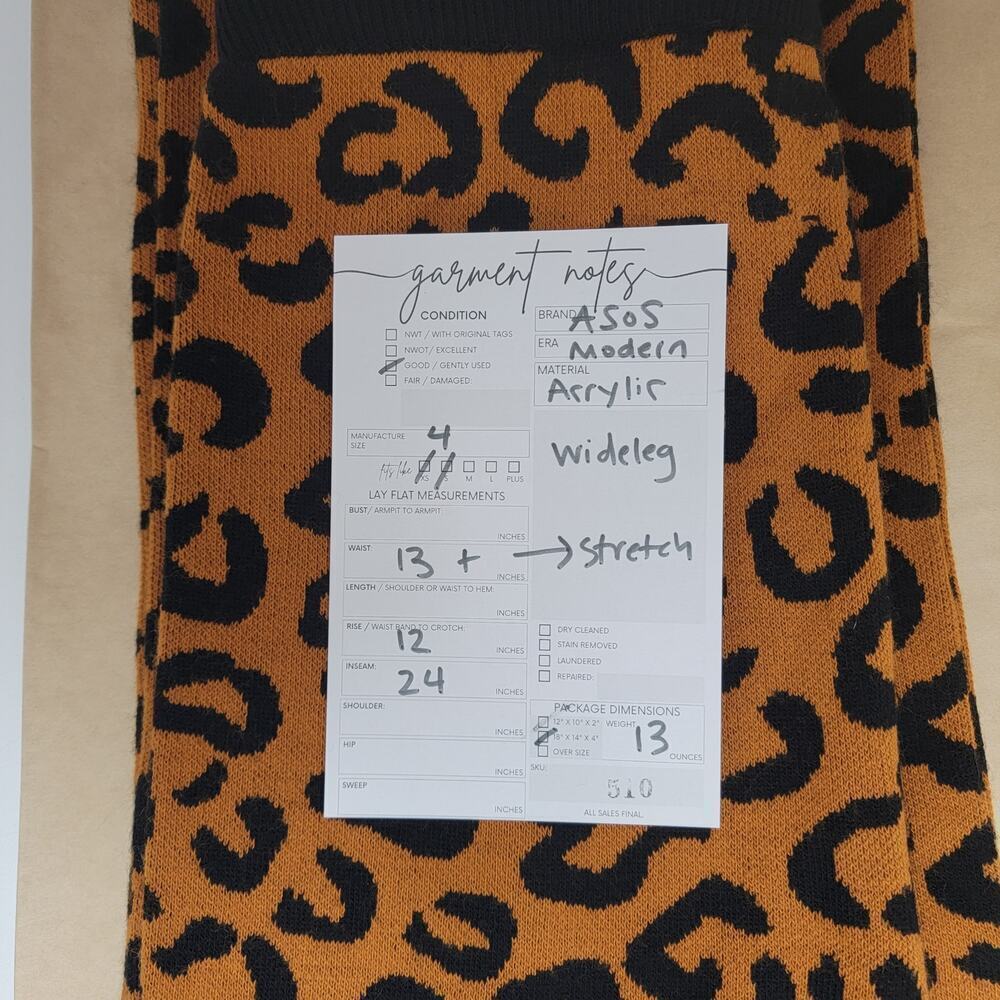 garment notes
CONDITION
NWT / WITH ORIGINAL TAGS
NWOT/ EXCELLENT
GOOD / GENTLY USED
FAIR / DAMAGED:
MANUFACTURE SIZE 4
fits like XS S M L PLUS
LAY FLAT MEASUREMENTS
BUST/ ARMPIT TO ARMPIT:
INCHES
WAIST: 13 + → Stretch
INCHES
LENGTH / SHOULDER OR WAIST TO HEM:
INCHES
RISE / WAIST BAND TO CROTCH:
12 INCHES
INSEAM:
24 INCHES
SHOULDER:
INCHES
HIP
INCHES
SWEEP
INCHES
BRAND ASOS
ERA Modern
MATERIAL
Acrylic
Wideleg
DRY CLEANED
STAIN REMOVED
LAUNDERED
REPAIRED:
PACKAGE DIMENSIONS
12" X 10" X 2" WEIGHT 13
18" X 14" X 4"
OVER SIZE OUNCES
SKU:
510
ALL SALES FINAL.